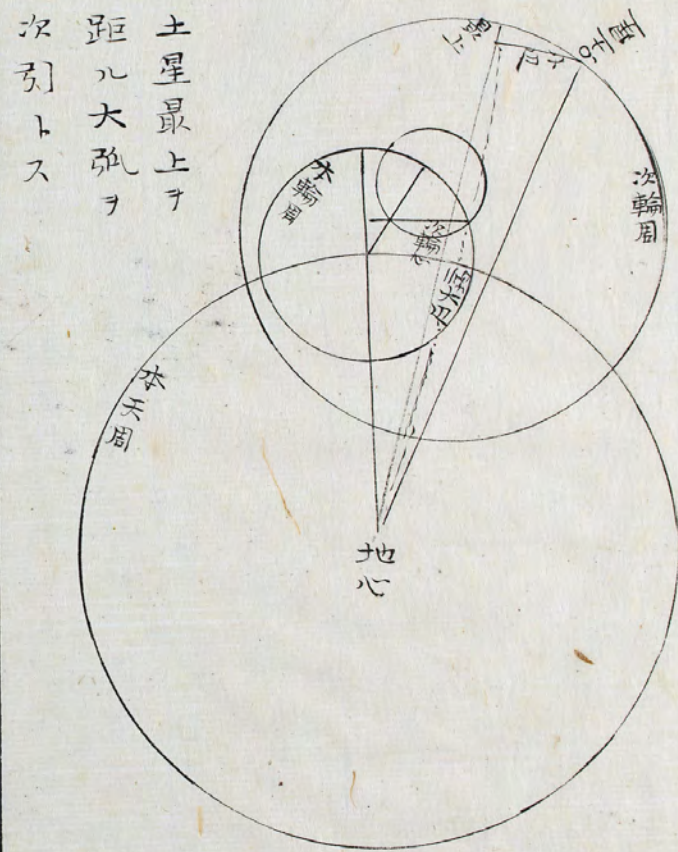 土星最上ヲ
距ル大弧ヲ
次引トス
最上
次輪周
本輪周
次輪心
本天周
地心